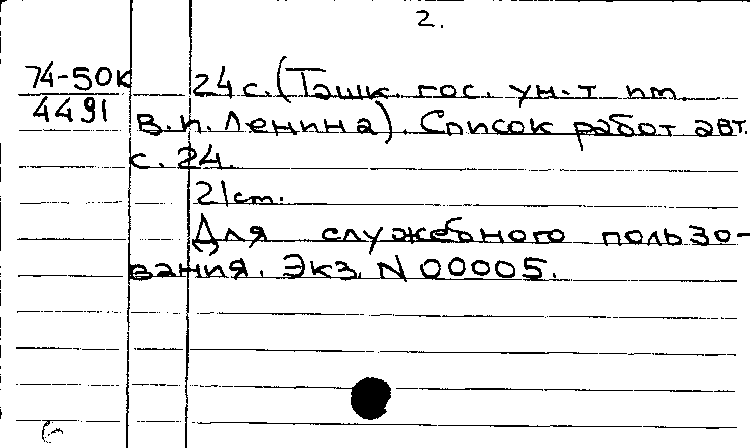 2.
74-50к 24 с. (Ташк. гос. ун-т им.
4491 В.И. Ленина). Список работ авт.
с. 24.
21 см.
Для служебного пользо-
вания. Экз. N 00005.